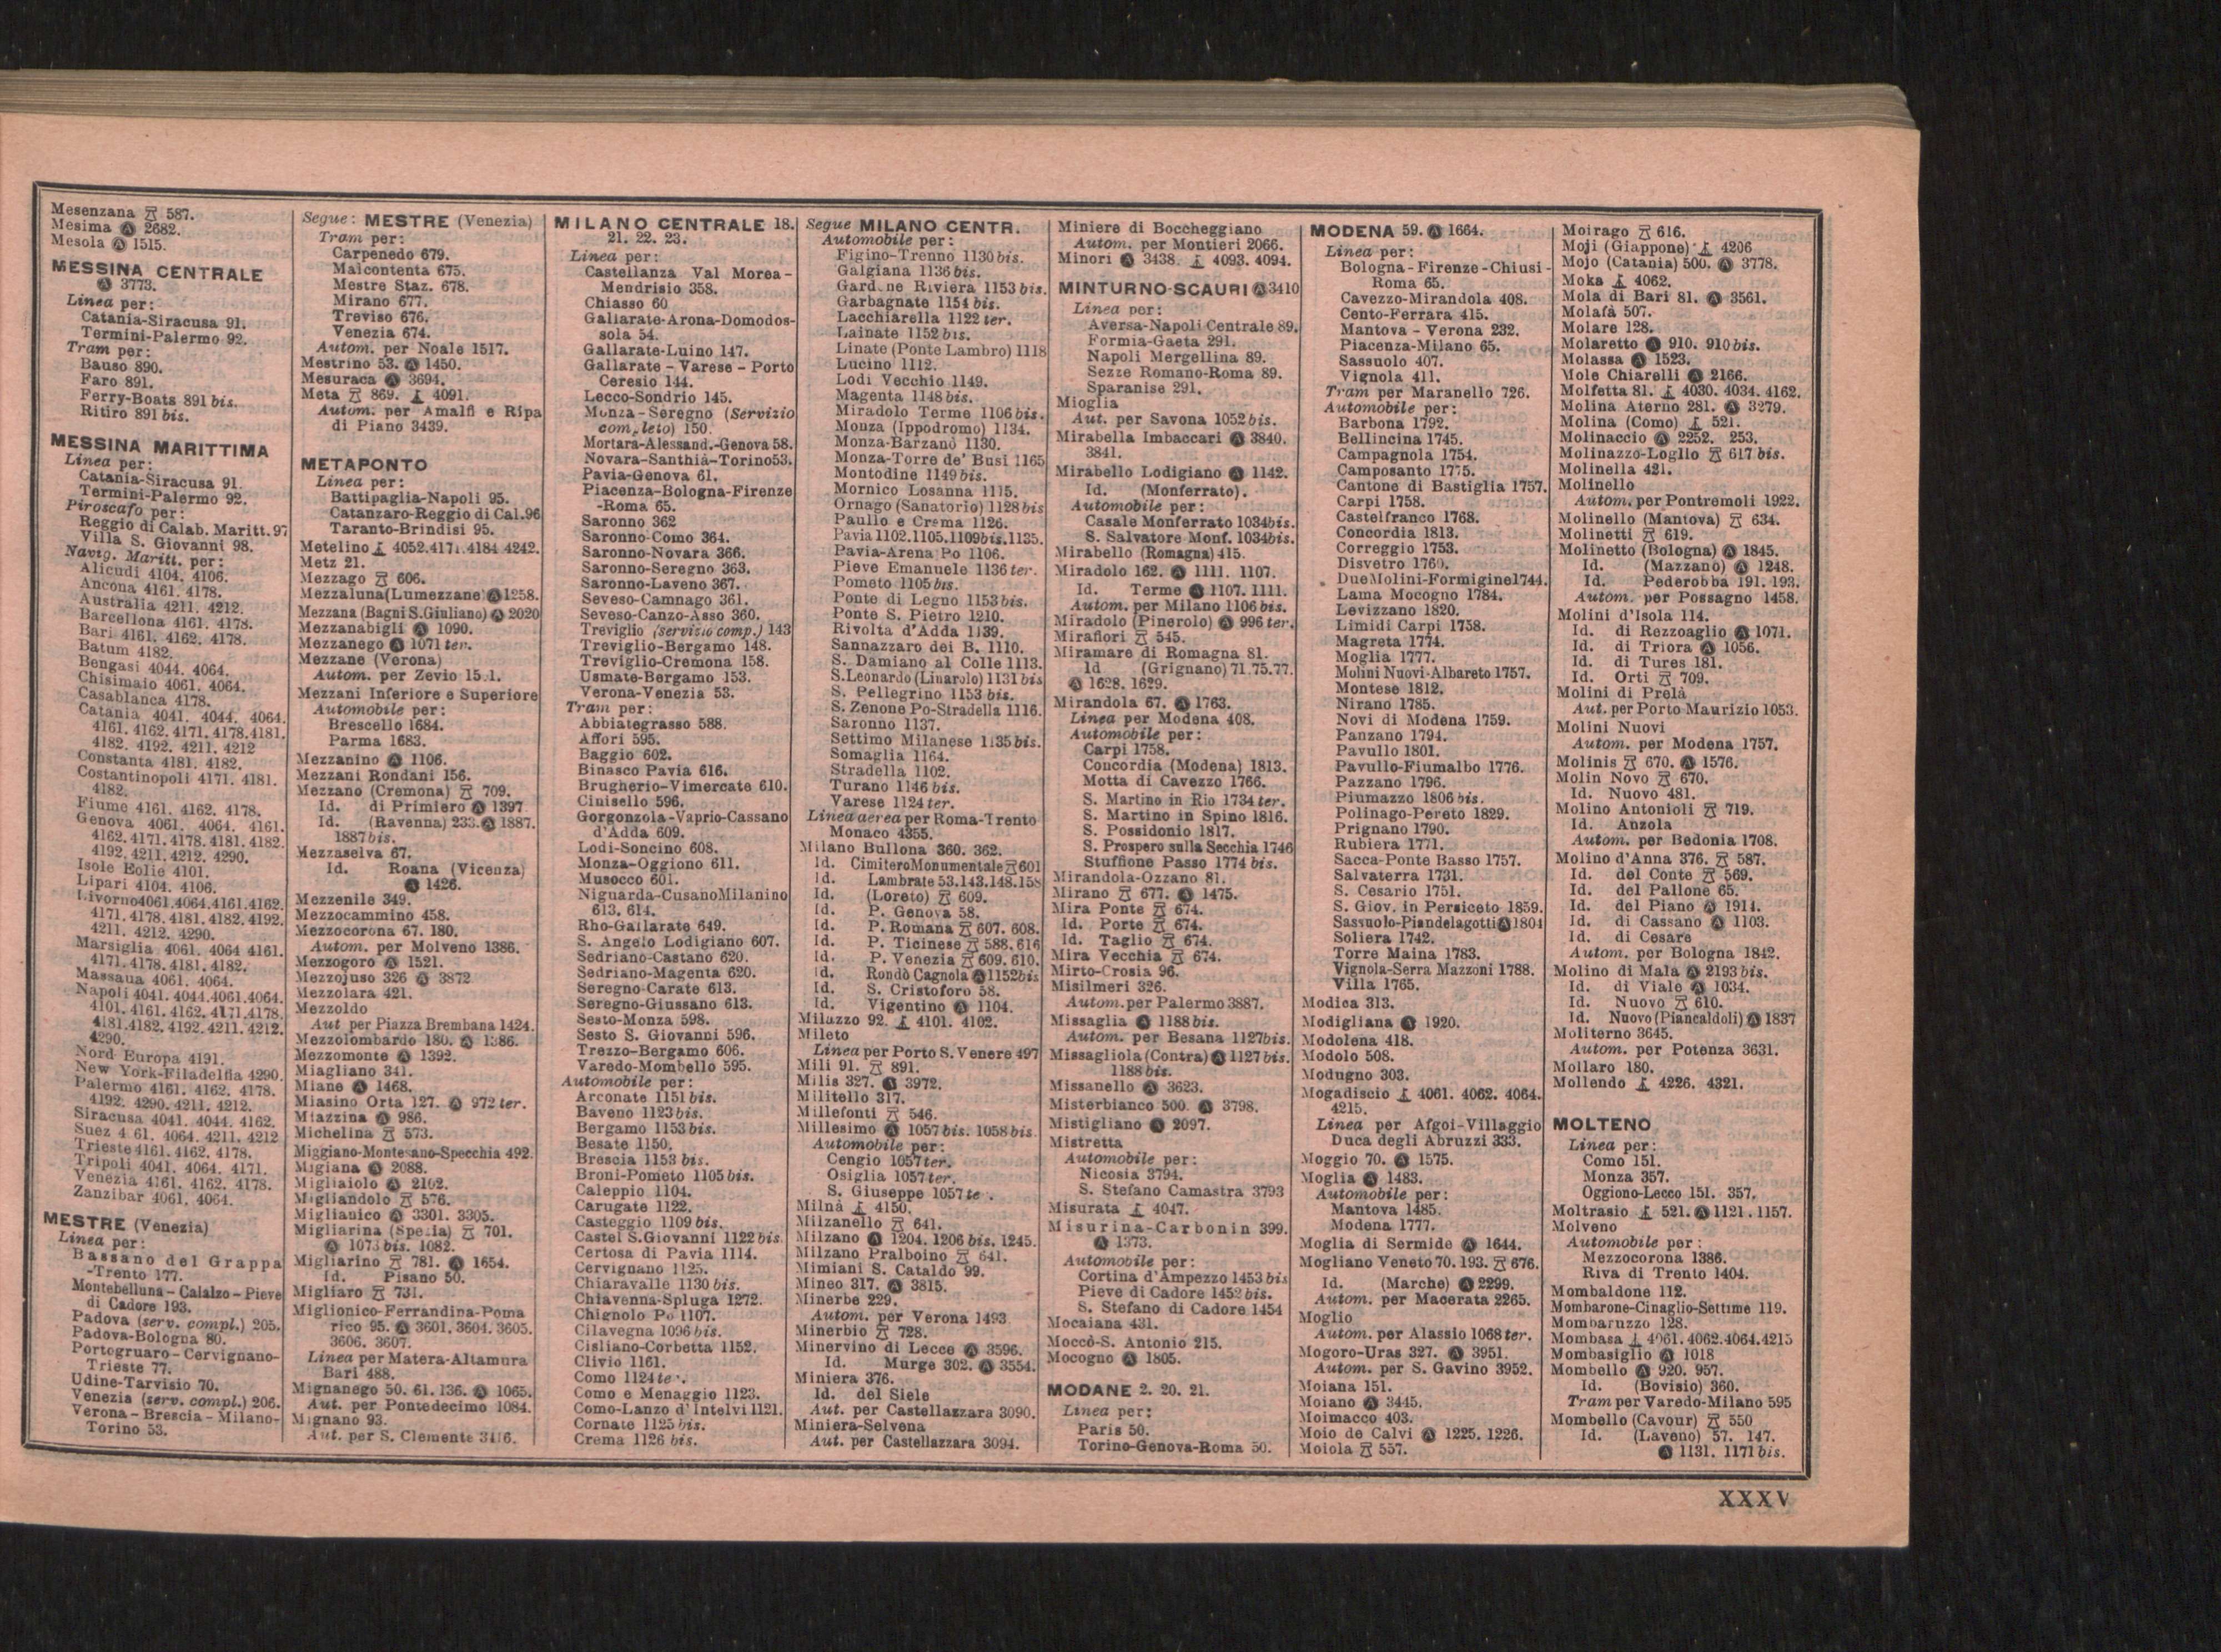 Mesenzana 587.
Mesima Ⓐ 2682.
Mesola Ⓐ 1515.
MESSINA CENTRALE
Ⓐ 3773.
Linea per:
Catania-Siracusa 91.
Termini-Palermo 92.
Tram per:
Bauso 890.
Faro 891.
Ferry-Boats 891 bis.
Ritiro 891 bis.
MESSINA MARITTIMA
Linea per:
Catania-Siracusa 91.
Termini-Palermo 92.
Piroscafo per:
Reggio di Calab. Maritt. 97
Villa S. Giovanni 98.
Navig. Maritt. per:
Alicudi 4104. 4106.
Ancona 4161. 4178.
Australia 4211. 4212.
Barcellona 4161. 4178.
Bari 4161. 4162. 4178.
Batum 4182.
Bengasi 4044. 4064.
Chisimaio 4061. 4064.
Casablanca 4178.
Catania 4041. 4044. 4064.
4161. 4162. 4171. 4178. 4181.
4182. 4192. 4211. 4212
Constanta 4181. 4182.
Costantinopoli 4171. 4181.
4182.
Fiume 4161. 4162. 4178.
Genova 4061. 4064. 4161.
4162. 4171. 4178. 4181. 4182.
4192. 4211. 4212. 4290.
Isole Eolie 4101.
Lipari 4104. 4106.
Livorno 4061. 4064. 4161. 4162.
4171. 4178. 4181. 4182. 4192.
4211. 4212. 4290.
Marsiglia 4061. 4064 4161.
4171. 4178. 4181. 4182.
Massaua 4061. 4064.
Napoli 4041. 4044. 4061. 4064.
4101. 4161. 4162. 4171. 4178.
4181. 4182. 4192. 4211. 4212.
4290.
Nord Europa 4191.
New York-Filadelfia 4290.
Palermo 4161. 4162. 4178.
4192. 4290. 4211. 4212.
Siracusa 4041. 4044. 4162.
Suez 4 61. 4064. 4211. 4212
Trieste 4161. 4162. 4178.
Tripoli 4041. 4064. 4171.
Venezia 4161. 4162. 4178.
Zanzibar 4061. 4064.
MESTRE (Venezia)
Linea per:
Bassano del Grappa
-Trento 177.
Montebelluna-Calalzo-Pieve
di Cadore 193.
Padova (serv. compl.) 205.
Padova-Bologna 80.
Portogruaro-Cervignano-
Trieste 77.
Udine-Tarvisio 70.
Venezia (serv. compl.) 206.
Verona-Brescia-Milano-
Torino 53.
Segue: MESTRE (Venezia)
Tram per:
Carpenedo 679.
Malcontenta 675.
Mestre Staz. 678.
Mirano 677.
Treviso 676.
Venezia 674.
Autom. per Noale 1517.
Mestrino 53. Ⓐ 1450.
Mesuraca Ⓐ 3694.
Meta 869. 4091.
Autom. per Amalfi e Ripa
di Piano 3439.
METAPONTO
Linea per:
Battipaglia-Napoli 95.
Catanzaro-Reggio di Cal. 96
Taranto-Brindisi 95.
Metelino 4052. 4171. 4184 4242.
Metz 21.
Mezzago 606.
Mezzaluna (Lumezzane) Ⓐ 1258.
Mezzana (Bagni S. Giuliano) Ⓐ 2020
Mezzanabigli Ⓐ 1090.
Mezzanego Ⓐ 1071 ter.
Mezzane (Verona)
Autom. per Zevio
Mezzani Inferiore e Superiore
Automobile per:
Brescello 1684.
Parma 1683.
Mezzanino Ⓐ 1106.
Mezzani Rondani 156.
Mezzano (Cremona) 709.
Id. di Primiero Ⓐ 1397
Id. (Ravenna) 233. Ⓐ 1887.
1887 bis.
Mezzaselva 67.
Id. Roana (Vicenza)
Ⓐ 1426.
Mezzenile 349.
Mezzocammino 458.
Mezzocorona 67. 180.
Autom. per Molveno 1386.
Mezzogoro Ⓐ 1521.
Mezzojuso 326 Ⓐ 3872
Mezzolara 421.
Mezzoldo
Aut per Piazza Brembana 1424.
Mezzolombardo 180. Ⓐ 1386.
Mezzomonte Ⓐ 1392.
Miagliano 341.
Miane Ⓐ 1468.
Miasino Orta 127. Ⓐ 972 ter.
Miazzina Ⓐ 986.
Michelina 573.
Miggiano-Montesano-Specchia 492.
Migiana Ⓐ 2088.
Migliaiolo Ⓐ 2102.
Migliandolo 576.
Miglianico Ⓐ 3301. 3305.
Migliarina (Spezia) 701.
Ⓐ 1073 bis. 1082.
Migliarino 781. Ⓐ 1654.
Id. Pisano 50.
Migliaro 731.
Miglionico-Ferrandina-Poma
rico 95. Ⓐ 3601. 3604. 3605.
3606. 3607.
Linea per Matera-Altamura
Bari 488.
Mignanego 50. 61. 136. Ⓐ 1065.
Aut. per Pontedecimo 1084.
Mignano 93.
Aut. per S. Clemente
MILANO CENTRALE 18.
21. 22. 23.
Linea per:
Castellanza Val Morea-
Mendrisio 358.
Chiasso 60
Gallarate-Arona-Domodos-
sola 54.
Gallarate-Luino 147.
Gallarate-Varese-Porto
Ceresio 144.
Lecco-Sondrio 145.
Monza-Seregno (Servizio
completo) 150.
Mortara-Alessand.-Genova 58.
Novara-Santhià-Torino 53.
Pavia-Genova 61.
Piacenza-Bologna-Firenze
-Roma 65.
Saronno 362
Saronno-Como 364.
Saronno-Novara 366.
Saronno-Seregno 363.
Saronno-Laveno 367.
Seveso-Camnago 361.
Seveso-Canzo-Asso 360.
Treviglio (servizio comp.) 143
Treviglio-Bergamo 148.
Treviglio-Cremona 158.
Usmate-Bergamo 153.
Verona-Venezia 53.
Tram per:
Abbiategrasso 588.
Affori 595.
Baggio 602.
Binasco Pavia 616.
Brugherio-Vimercate 610.
Cinisello 596.
Gorgonzola-Vaprio-Cassano
d'Adda 609.
Lodi-Soncino 608.
Monza-Oggiono 611.
Musocco 601.
Niguarda-Cusano Milanino
613. 614.
Rho-Gallarate 649.
S. Angelo Lodigiano 607.
Sedriano-Castano 620.
Sedriano-Magenta 620.
Seregno-Carate 613.
Seregno-Giussano 613.
Sesto-Monza 598.
Sesto S. Giovanni 596.
Trezzo-Bergamo 606.
Varedo-Mombello 595.
Automobile per:
Arconate 1151 bis.
Baveno 1123 bis.
Bergamo 1153 bis.
Besate 1150.
Brescia 1153 bis.
Broni-Pometo 1105 bis.
Caleppio 1104.
Carugate 1122.
Casteggio 1109 bis.
Castel S. Giovanni 1122 bis
Certosa di Pavia 1114.
Cervignano 1125.
Chiaravalle 1130 bis.
Chiavenna-Spluga 1272.
Chignolo Po 1107.
Cilavegna 1096 bis.
Cisliano-Corbetta 1152.
Clivio 1161.
Como 1124 te .
Como e Menaggio 1123.
Como-Lanzo d'Intelvi 1121.
Cornate 1125 bis.
Crema 1126 bis.
Segue MILANO CENTR.
Automobile per:
Figino-Trenno 1130 bis.
Galgiana 1136 bis.
Gard ne Riviera 1153 bis.
Garbagnate 1154 bis.
Lacchiarella 1122 ter.
Lainate 1152 bis.
Linate (Ponte Lambro) 1118
Lucino 1112.
Lodi Vecchio 1149.
Magenta 1148 bis.
Miradolo Terme 1106 bis.
Monza (Ippodromo) 1134.
Monza-Barzanò 1130.
Monza-Torre de' Busi 1165
Montodine 1149 bis.
Mornico Losanna 1115.
Ornago (Sanatorio) 1128 bis
Paullo e Crema 1126.
Pavia 1102. 1105. 1109 bis. 1135.
Pavia-Arena Po 1106.
Pieve Emanuele 1136 ter.
Pometo 1105 bis.
Ponte di Legno 1153 bis.
Ponte S. Pietro 1210.
Rivolta d'Adda 1139.
Sannazzaro dei B. 1110.
S. Damiano al Colle 1113.
S. Leonardo (Linarolo) 1131 bis
S. Pellegrino 1153 bis.
S. Zenone Po-Stradella 1116.
Saronno 1137.
Settimo Milanese 1135 bis.
Somaglia 1164.
Stradella 1102.
Turano 1146 bis.
Varese 1124 ter.
Linea aerea per Roma-Trento
Monaco 4355.
Milano Bullona 360. 362.
Id. Cimitero Monumentale 601
Id. Lambrate 53. 143. 148. 158
Id. (Loreto) 609.
Id. P. Genova 58.
Id. P. Romana 607. 608.
Id. P. Ticinese 588. 616
Id. P. Venezia 609. 610.
Id. Rondò Cagnola Ⓐ 1152 bis
Id. S. Cristoforo 58.
Id. Vigentino Ⓐ 1104.
Milazzo 92. 4101. 4102.
Mileto
Linea per Porto S. Venere 497
Mili 91. 891.
Milis 327. Ⓐ 3972.
Militello 317.
Millefonti 546.
Millesimo Ⓐ 1057 bis. 1058 bis
Automobile per:
Cengio 1057 ter.
Osiglia 1057 ter.
S. Giuseppe 1057 te .
Milnà 4150.
Milzanello 641.
Milzano Ⓐ 1204. 1206 bis. 1245.
Milzano Pralboino 641.
Mimiani S. Cataldo 99.
Mineo 317. Ⓐ 3815.
Minerbe 229.
Autom. per Verona 1493
Minerbio 728.
Minervino di Lecce Ⓐ 3596.
Id. Murge 302. Ⓐ 3554.
Miniera 376.
Id. del Siele
Aut. per Castellazzara 3090.
Miniera-Selvena
Aut. per Castellazzara 3094.
Miniere di Boccheggiano
Autom. per Montieri 2066.
Minori Ⓐ 3438. 4093. 4094.
MINTURNO-SCAURI Ⓐ 3410
Linea per:
Aversa-Napoli Centrale 89.
Formia-Gaeta 291.
Napoli Mergellina 89.
Sezze Romano-Roma 89.
Sparanise 291.
Mioglia
Aut. per Savona 1052 bis.
Mirabella Imbaccari Ⓐ 3840.
3841.
Mirabello Lodigiano Ⓐ 1142.
Id. (Monferrato).
Automobile per:
Casale Monferrato 1034 bis.
S. Salvatore Monf. 1034 bis.
Mirabello (Romagna) 415.
Miradolo 162. Ⓐ 1111. 1107.
Id. Terme Ⓐ 1107. 1111.
Autom. per Milano 1106 bis.
Miradolo (Pinerolo) Ⓐ 996 ter.
Miraflori 545.
Miramare di Romagna 81.
Id (Grignano) 71. 75. 77.
Ⓐ 1628. 1629.
Mirandola 67. Ⓐ 1763.
Linea per Modena 408.
Automobile per:
Carpi 1758.
Concordia (Modena) 1813.
Motta di Cavezzo 1766.
S. Martino in Rio 1734 ter.
S. Martino in Spino 1816.
S. Possidonio 1817.
S. Prospero sulla Secchia 1746
Stuffione Passo 1774 bis.
Mirandola-Ozzano 81.
Mirano 677. Ⓐ 1475.
Mira Ponte 674.
Id. Porte 674.
Id. Taglio 674.
Mira Vecchia 674.
Mirto-Crosia 96.
Misilmeri 326.
Autom. per Palermo 3887.
Missaglia Ⓐ 1188 bis.
Autom. per Besana 1127 bis.
Missagliola (Contra) Ⓐ 1127 bis.
1188 bis.
Missanello Ⓐ 3623.
Misterbianco 500. Ⓐ 3798.
Mistigliano Ⓐ 2097.
Mistretta
Automobile per:
Nicosia 3794.
S. Stefano Camastra 3793
Misurata 4047.
Misurina-Carbonin 399.
Ⓐ 1373.
Automobile per:
Cortina d'Ampezzo 1453 bis
Pieve di Cadore 1452 bis.
S. Stefano di Cadore 1454
Mocaiana 431.
Moccò-S. Antonio 215.
Mocogno Ⓐ 1805.
MODANE 2. 20. 21.
Linea per:
Paris 50.
Torino-Genova-Roma 50.
MODENA 59. Ⓐ 1664.
Linea per:
Bologna-Firenze-Chiusi-
Roma 65.
Cavezzo-Mirandola 408.
Cento-Ferrara 415.
Mantova-Verona 232.
Piacenza-Milano 65.
Sassuolo 407.
Vignola 411.
Tram per Maranello 726.
Automobile per:
Barbona 1792.
Bellincina 1745.
Campagnola 1754.
Camposanto 1775.
Cantone di Bastiglia 1757.
Carpi 1758.
Castelfranco 1768.
Concordia 1813.
Correggio 1753.
Disvetro 1760.
Due Molini-Formigine 1744.
Lama Mocogno 1784.
Levizzano 1820.
Limidi Carpi 1758.
Magreta 1774.
Moglia 1777.
Molini Nuovi-Albareto 1757.
Montese 1812.
Nirano 1785.
Novi di Modena 1759.
Panzano 1794.
Pavullo 1801.
Pavullo-Fiumalbo 1776.
Pazzano 1796.
Piumazzo 1806 bis.
Polinago-Pereto 1829.
Prignano 1790.
Rubiera 1771.
Sacca-Ponte Basso 1757.
Salvaterra 1731.
S. Cesario 1751.
S. Giov. in Persiceto 1859.
Sassuolo-Piandelagotti Ⓐ 1804
Soliera 1742.
Torre Maina 1783.
Vignola-Serra Mazzoni 1788.
Villa 1765.
Modica 313.
Modigliana Ⓐ 1920.
Modolena 418.
Modolo 508.
Modugno 303.
Mogadiscio 4061. 4062. 4064.
4215.
Linea per Afgoi-Villaggio
Duca degli Abruzzi 333.
Moggio 70. Ⓐ 1575.
Moglia Ⓐ 1483.
Automobile per:
Mantova 1485.
Modena 1777.
Moglia di Sermide Ⓐ 1644.
Mogliano Veneto 70. 193. 676.
Id. (Marche) Ⓐ 2299.
Autom. per Macerata 2265.
Moglio
Autom. per Alassio 1068 ter.
Mogoro-Uras 327. Ⓐ 3951.
Autom. per S. Gavino 3952.
Moiana 151.
Moiano Ⓐ 3445.
Moimacco 403.
Moio de Calvi Ⓐ 1225. 1226.
Moiola 557.
Moirago 616.
Moji (Giappone) 4206
Mojo (Catania) 500. Ⓐ 3778.
Moka 4062.
Mola di Bari 81. Ⓐ 3561.
Molafà 507.
Molare 128.
Molaretto Ⓐ 910. 910 bis.
Molassa Ⓐ 1523.
Mole Chiarelli Ⓐ 2166.
Molfetta 81. 4030. 4034. 4162.
Molina Aterno 281. Ⓐ 3279.
Molina (Como) 521.
Molinaccio Ⓐ 2252. 253.
Molinazzo-Loglio 617 bis.
Molinella 421.
Molinello
Autom. per Pontremoli 1922.
Molinello (Mantova) 634.
Molinetti 619.
Molinetto (Bologna) Ⓐ 1845.
Id. (Mazzano) Ⓐ 1248.
Id. Pederobba 191. 193.
Autom. per Possagno 1458.
Molini d'Isola 114.
Id. di Rezzoaglio Ⓐ 1071.
Id. di Triora Ⓐ 1056.
Id. di Tures 181.
Id. Orti 709.
Molini di Prelà
Aut. per Porto Maurizio 1053.
Molini Nuovi
Autom. per Modena 1757.
Molinis 670. Ⓐ 1576.
Molin Novo 670.
Id. Nuovo 481.
Molino Antonioli 719.
Id. Anzola
Autom. per Bedonia 1708.
Molino d'Anna 376. 587.
Id. del Conte 569.
Id. del Pallone 65.
Id. del Piano Ⓐ 1911.
Id. di Cassano Ⓐ 1103.
Id. di Cesare
Autom. per Bologna 1842.
Molino di Mala Ⓐ 2193 bis.
Id. di Viale Ⓐ 1034.
Id. Nuovo 610.
Id. Nuovo (Piancaldoli) Ⓐ 1837
Moliterno 3645.
Autom. per Potenza 3631.
Mollaro 180.
Mollendo 4226. 4321.
MOLTENO
Linea per:
Como 151.
Monza 357.
Oggiono-Lecco 151. 357.
Moltrasio 521. Ⓐ 1121. 1157.
Molveno
Automobile per:
Mezzocorona 1386.
Riva di Trento 1404.
Mombaldone 112.
Mombarone-Cinaglio-Settime 119.
Mombaruzzo 128.
Mombasa 4061. 4062. 4064. 4215
Mombasiglio Ⓐ 1018
Mombello Ⓐ 920. 957.
Id. (Bovisio) 360.
Tram per Varedo-Milano 595
Mombello (Cavour) 550
Id. (Laveno) 57. 147.
Ⓐ 1131. 1171 bis.
XXXV